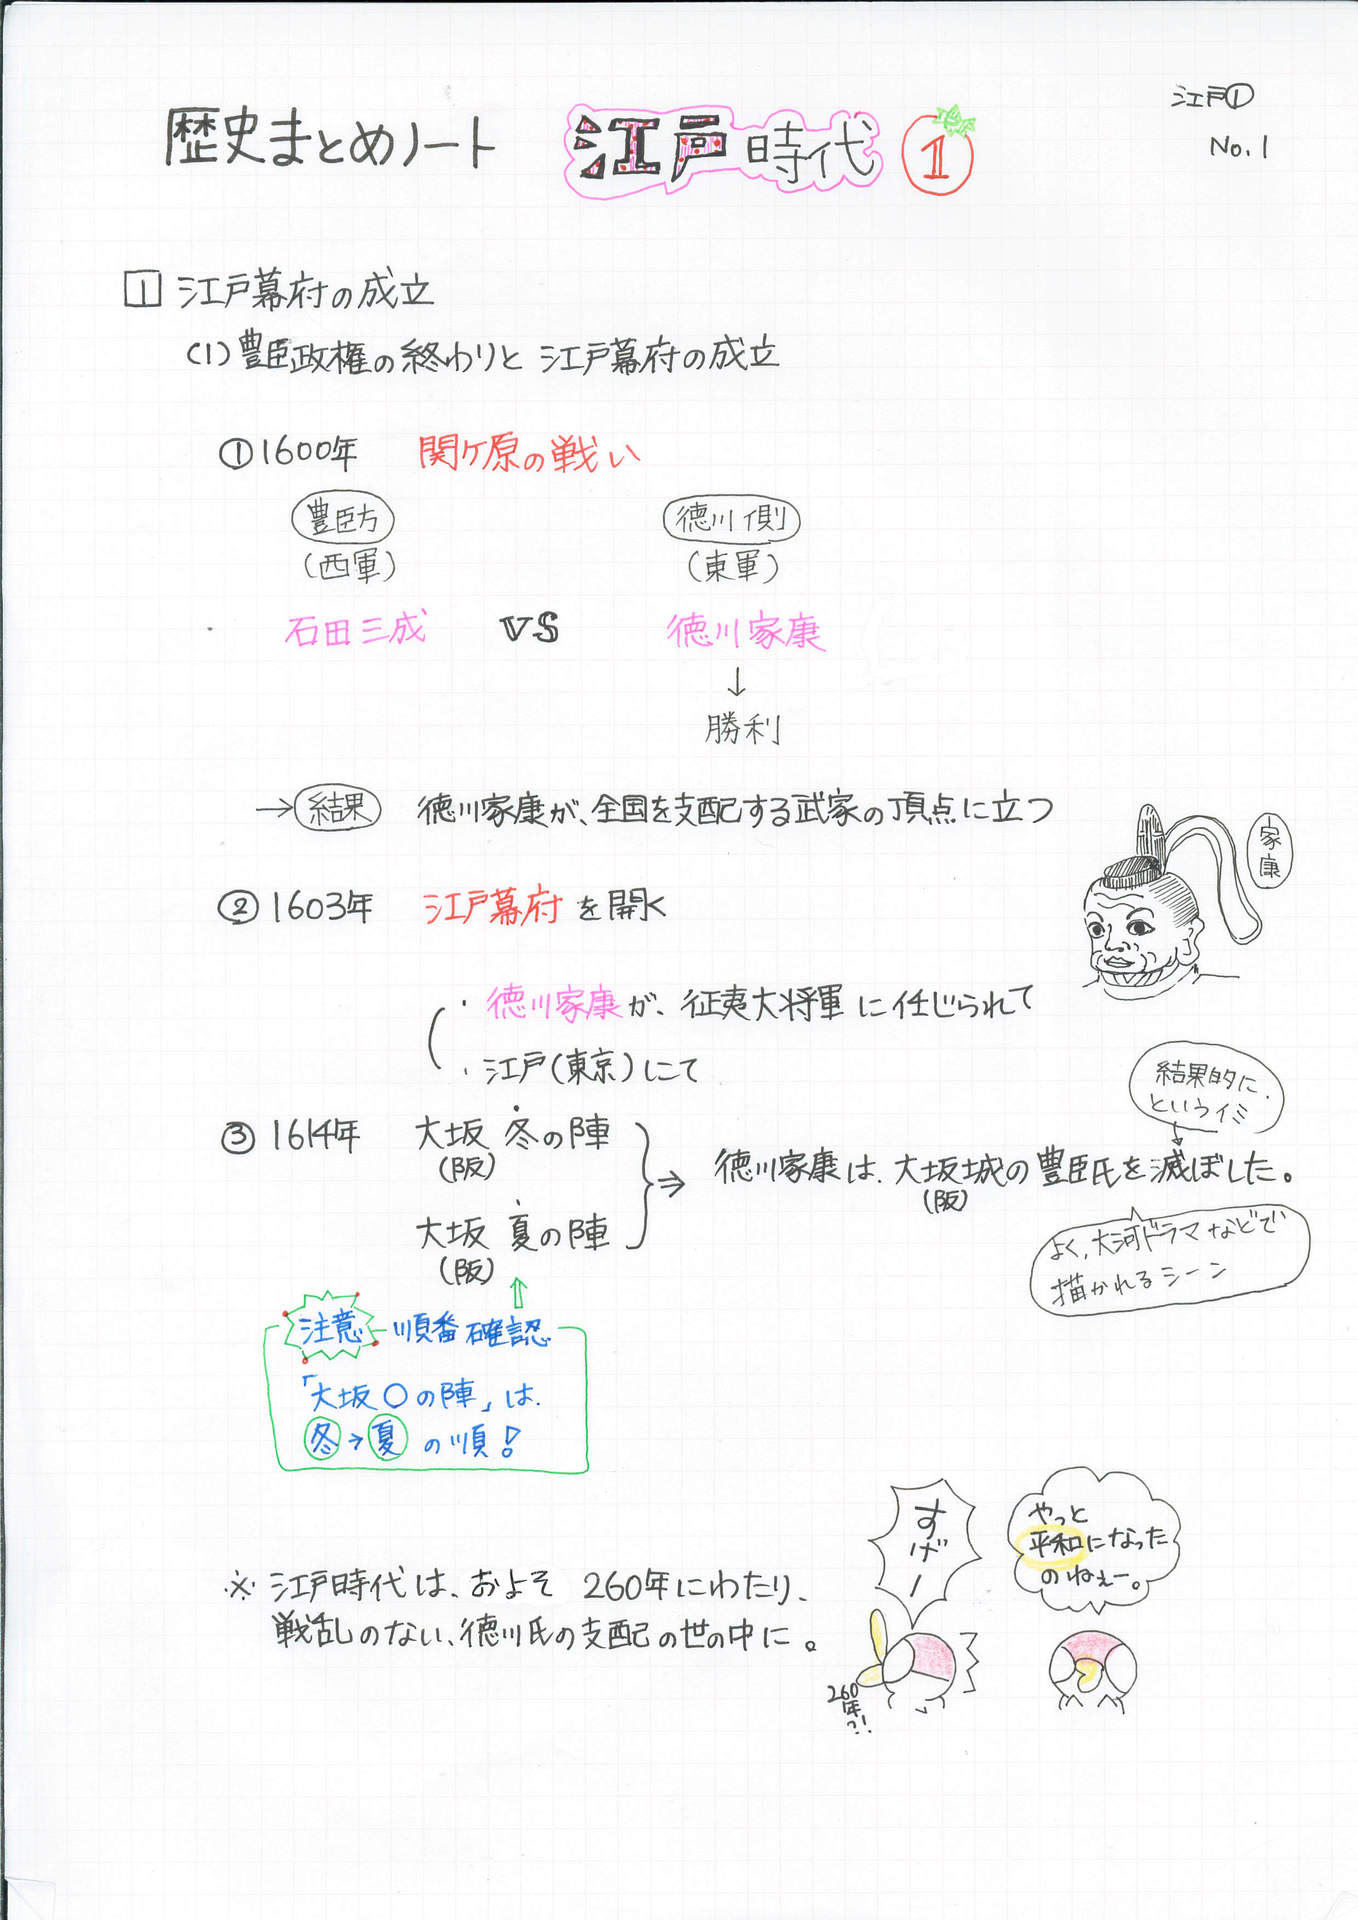 江戸①
No.1
歴史まとめノート 江戸時代 ①
1 江戸幕府の成立
(1)豊臣政権の終わりと 江戸幕府の成立
①1600年 関ケ原の戦い
豊臣方 徳川側
(西軍) (東軍)
石田三成 VS 徳川家康
↓
勝利
→結果 徳川家康が、全国を支配する武家の頂点に立つ
家康
②1603年 江戸幕府を開く
・徳川家康が、征夷大将軍に任じられて
・江戸(東京)にて
結果的に
というイミ
③1614年 大坂 冬の陣
(阪)
大坂 夏の陣
(阪)
⇒ 徳川家康は、大坂城の豊臣氏を滅ぼした。
(阪)
よく、大河ドラマなどで
描かれるシーン
注意 順番確認
「大坂〇の陣」は、
冬→夏の順!
すげー
やっと
平和になった
のねぇー。
※江戸時代は、およそ 260年にわたり、
戦乱のない、徳川氏の支配の世の中に。
260
年
?!